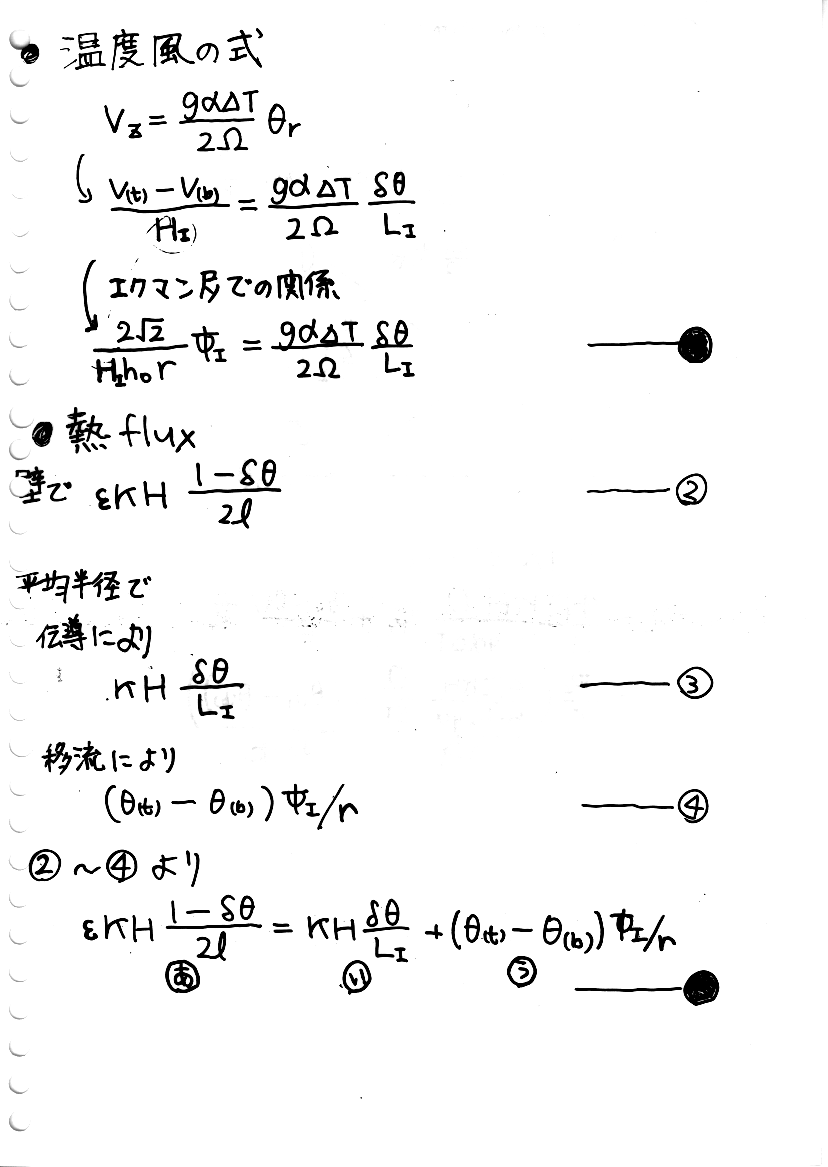 ● 温度風の式
V_z = gαΔT/2Ω θ_r
(V(t) − V(b))/H_I = gαΔT/2Ω δθ/L_I
エクマン層での関係
2√2/(H_I h_0 r) Φ_I = gαΔT/2Ω δθ/L_I
● 熱 flux
壁で εKH (1−δθ)/2l ②
平均半径で
伝導により
KH δθ/L_I ③
移流により
(θ(t) − θ(b)) Φ_I/r ④
②〜④ より
εKH (1−δθ)/2l = KH δθ/L_I + (θ(t) − θ(b)) Φ_I/r
あ い う